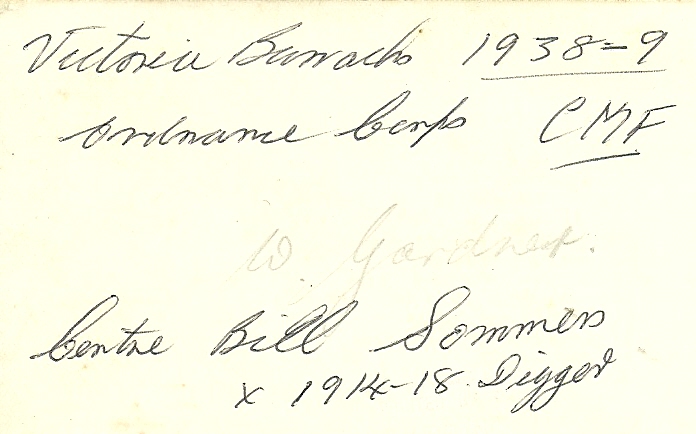 Victoria Barracks 1938-9
Ordnance Corps CMF
W. Gardner.
Centre Bill Sommers
x 1914-18 Digger